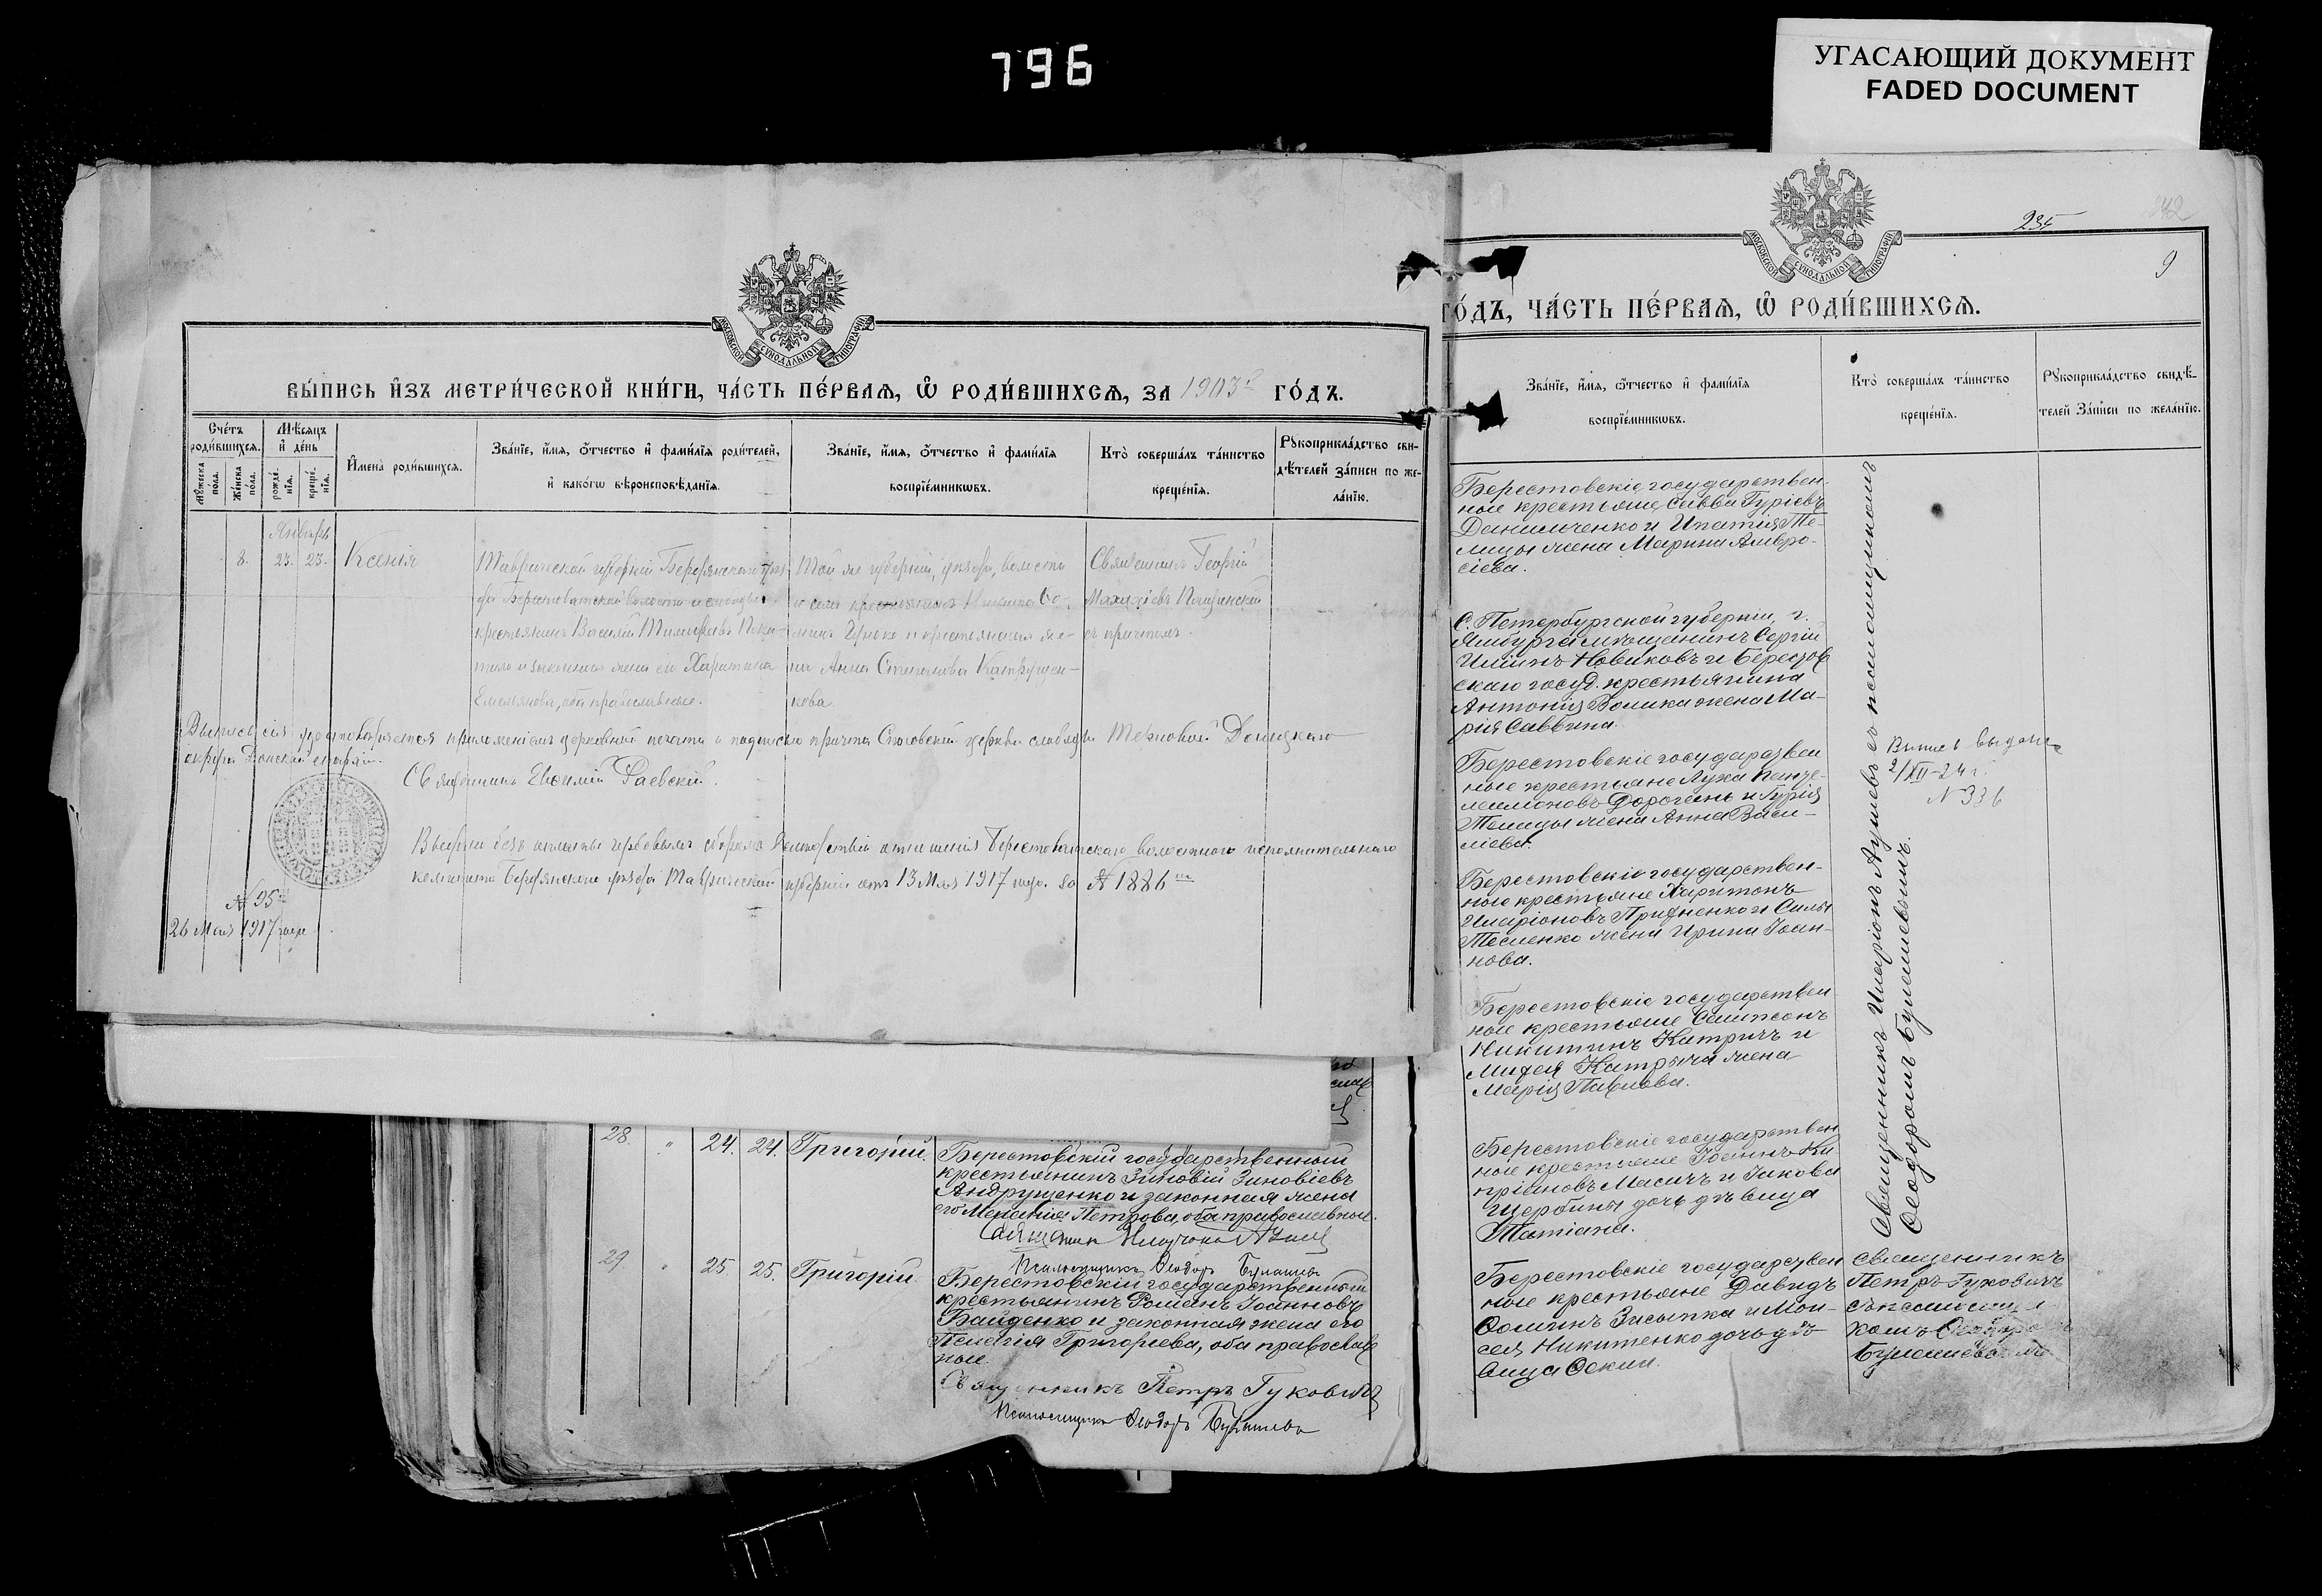 796
УГАСАЮЩИЙ ДОКУМЕНТ
FADED DOCUMENT
МОСКОВСКОЙ СѴНОДАЛЬНОЙ ТИПОГРАФІИ
ВЫ́ПИСЬ И҆ЗЪ МЕТРИ́ЧЕСКОЙ КНИ́ГИ, ЧА́СТЬ ПЕ́РВАѦ, Ѽ РОДИ́ВШИХСѦ, ЗА 1903й ГО́ДЪ.
Сче́тъ роди́вшихсѧ.
Мꙋ́жеска по́ла.
Же́нска по́ла.
Мѣ́сѧцъ и҆ де́нь
рожде́нїѧ.
креще́нїѧ.
И҆мена̀ роди́вшихсѧ.
Зва́нїе, и҆́мѧ, ѻ҆́тчество и҆ фами́лїѧ роди́телей,
и҆ како́гѡ вѣроисповѣ́данїѧ.
Зва́нїе, и҆́мѧ, ѻ҆́тчество и҆ фами́лїѧ
воспрїе́мникѡвъ.
Кто̀ соверша́лъ та́инство
креще́нїѧ.
Рꙋкоприкла́дство сви-
дѣ́телей за́писи по же-
ла́нїю.
Январь
8. 23. 23. Ксенія
Таврической губерніи Бердянскаго уѣз-
да Берестоватской волости и слободы
крестьянинъ Василій Тимофеевъ
и законная жена его Харитина
Емельянова, оба православные.
Той же губерніи, уѣзда, волости
и села крестьянинъ Никита
и крестьянская же-
на Анна Степанова
кова.
Священникъ Георгій
съ причтомъ.
Выпись сія удостовѣряется приложеніемъ церковной печати и подписью причта церкви слободы Терновой Донецкаго
округа Донской епархіи.
Священникъ Евѳимій Раевскій.
Выдана безъ оплаты гербовымъ сборомъ вслѣдствіе отношенія Берестоватскаго волостного исполнительнаго
комитета Бердянскаго уѣзда Таврической губерніи отъ 13 Мая 1917 года за № 1886
№ 95
26 Мая 1917 года
28. " 24. 24. Григорій.
Берестовскій государственный
крестьянинъ Зиновій Зиновіевъ
Андрущенко и законная жена
его Меланія Петрова, оба православные.
29. " 25. 25. Григорій
Псаломщикъ Ѳеодоръ
Берестовскій государственный
крестьянинъ Романъ Іоанновъ
Байденко и законная жена его
Пелагія Григорьева, оба православ
ные.
Священникъ Петръ Гуковичъ
Псаломщикъ Ѳеодоръ
235
242
9
МОСКОВСКОЙ СѴНОДАЛЬНОЙ ТИПОГРАФІИ
ГО́ДЪ, ЧА́СТЬ ПЕ́РВАѦ, Ѽ РОДИ́ВШИХСѦ.
Зва́нїе, и҆́мѧ, ѻ҆́тчество и҆ фами́лїѧ
воспрїе́мникѡвъ.
Кто̀ соверша́лъ та́инство
креще́нїѧ.
Рꙋкоприкла́дство свидѣ́-
телей за́писи по жела́нїю.
Берестовскіе государствен-
ные крестьяне Савва Гуріевъ
Данильченко и Ипатія Те-
лицы жена Марина Амвро-
сіева.
С. Петербургской губерніи, г.
Ямбурга мѣщанинъ Сергій
Ильинъ Новиковъ и Берестов
скаго госуд. крестьянина
Антонія Волика жена Ма-
рія Саввина.
Берестовскіе государствен
ные крестьяне Лука Панте-
леимоновъ Дорогань и Гурія
Телицы жена Анна Васи-
ліева.
Берестовскіе государствен-
ные крестьяне Харитонъ
Иларіоновъ Придненко и Силы
Тесленко жена Ирина Іоан-
нова.
Берестовскіе государствен
ные крестьяне Сампсонъ
Никитинъ Катричъ и
Мифея Катрыча жена
Марія Павлова.
Берестовскіе государствен
ные крестьяне Іоаннъ Ки-
пріановъ Масичъ и Іакова
Щербины дочь дѣвица
Татіана.
Берестовскіе государствен
ные крестьяне Давидъ
Ѳоминъ Засыпка и Мои-
сея Никитенко дочь дѣ-
вица Ѳекла.
Священникъ Иларіонъ съ псаломщикомъ
Ѳеодоромъ
Выпись выдана
2/XII-24 г.
N 336
Священникъ
Петръ Гуковичъ
съ псаломщи-
комъ Ѳеодоро